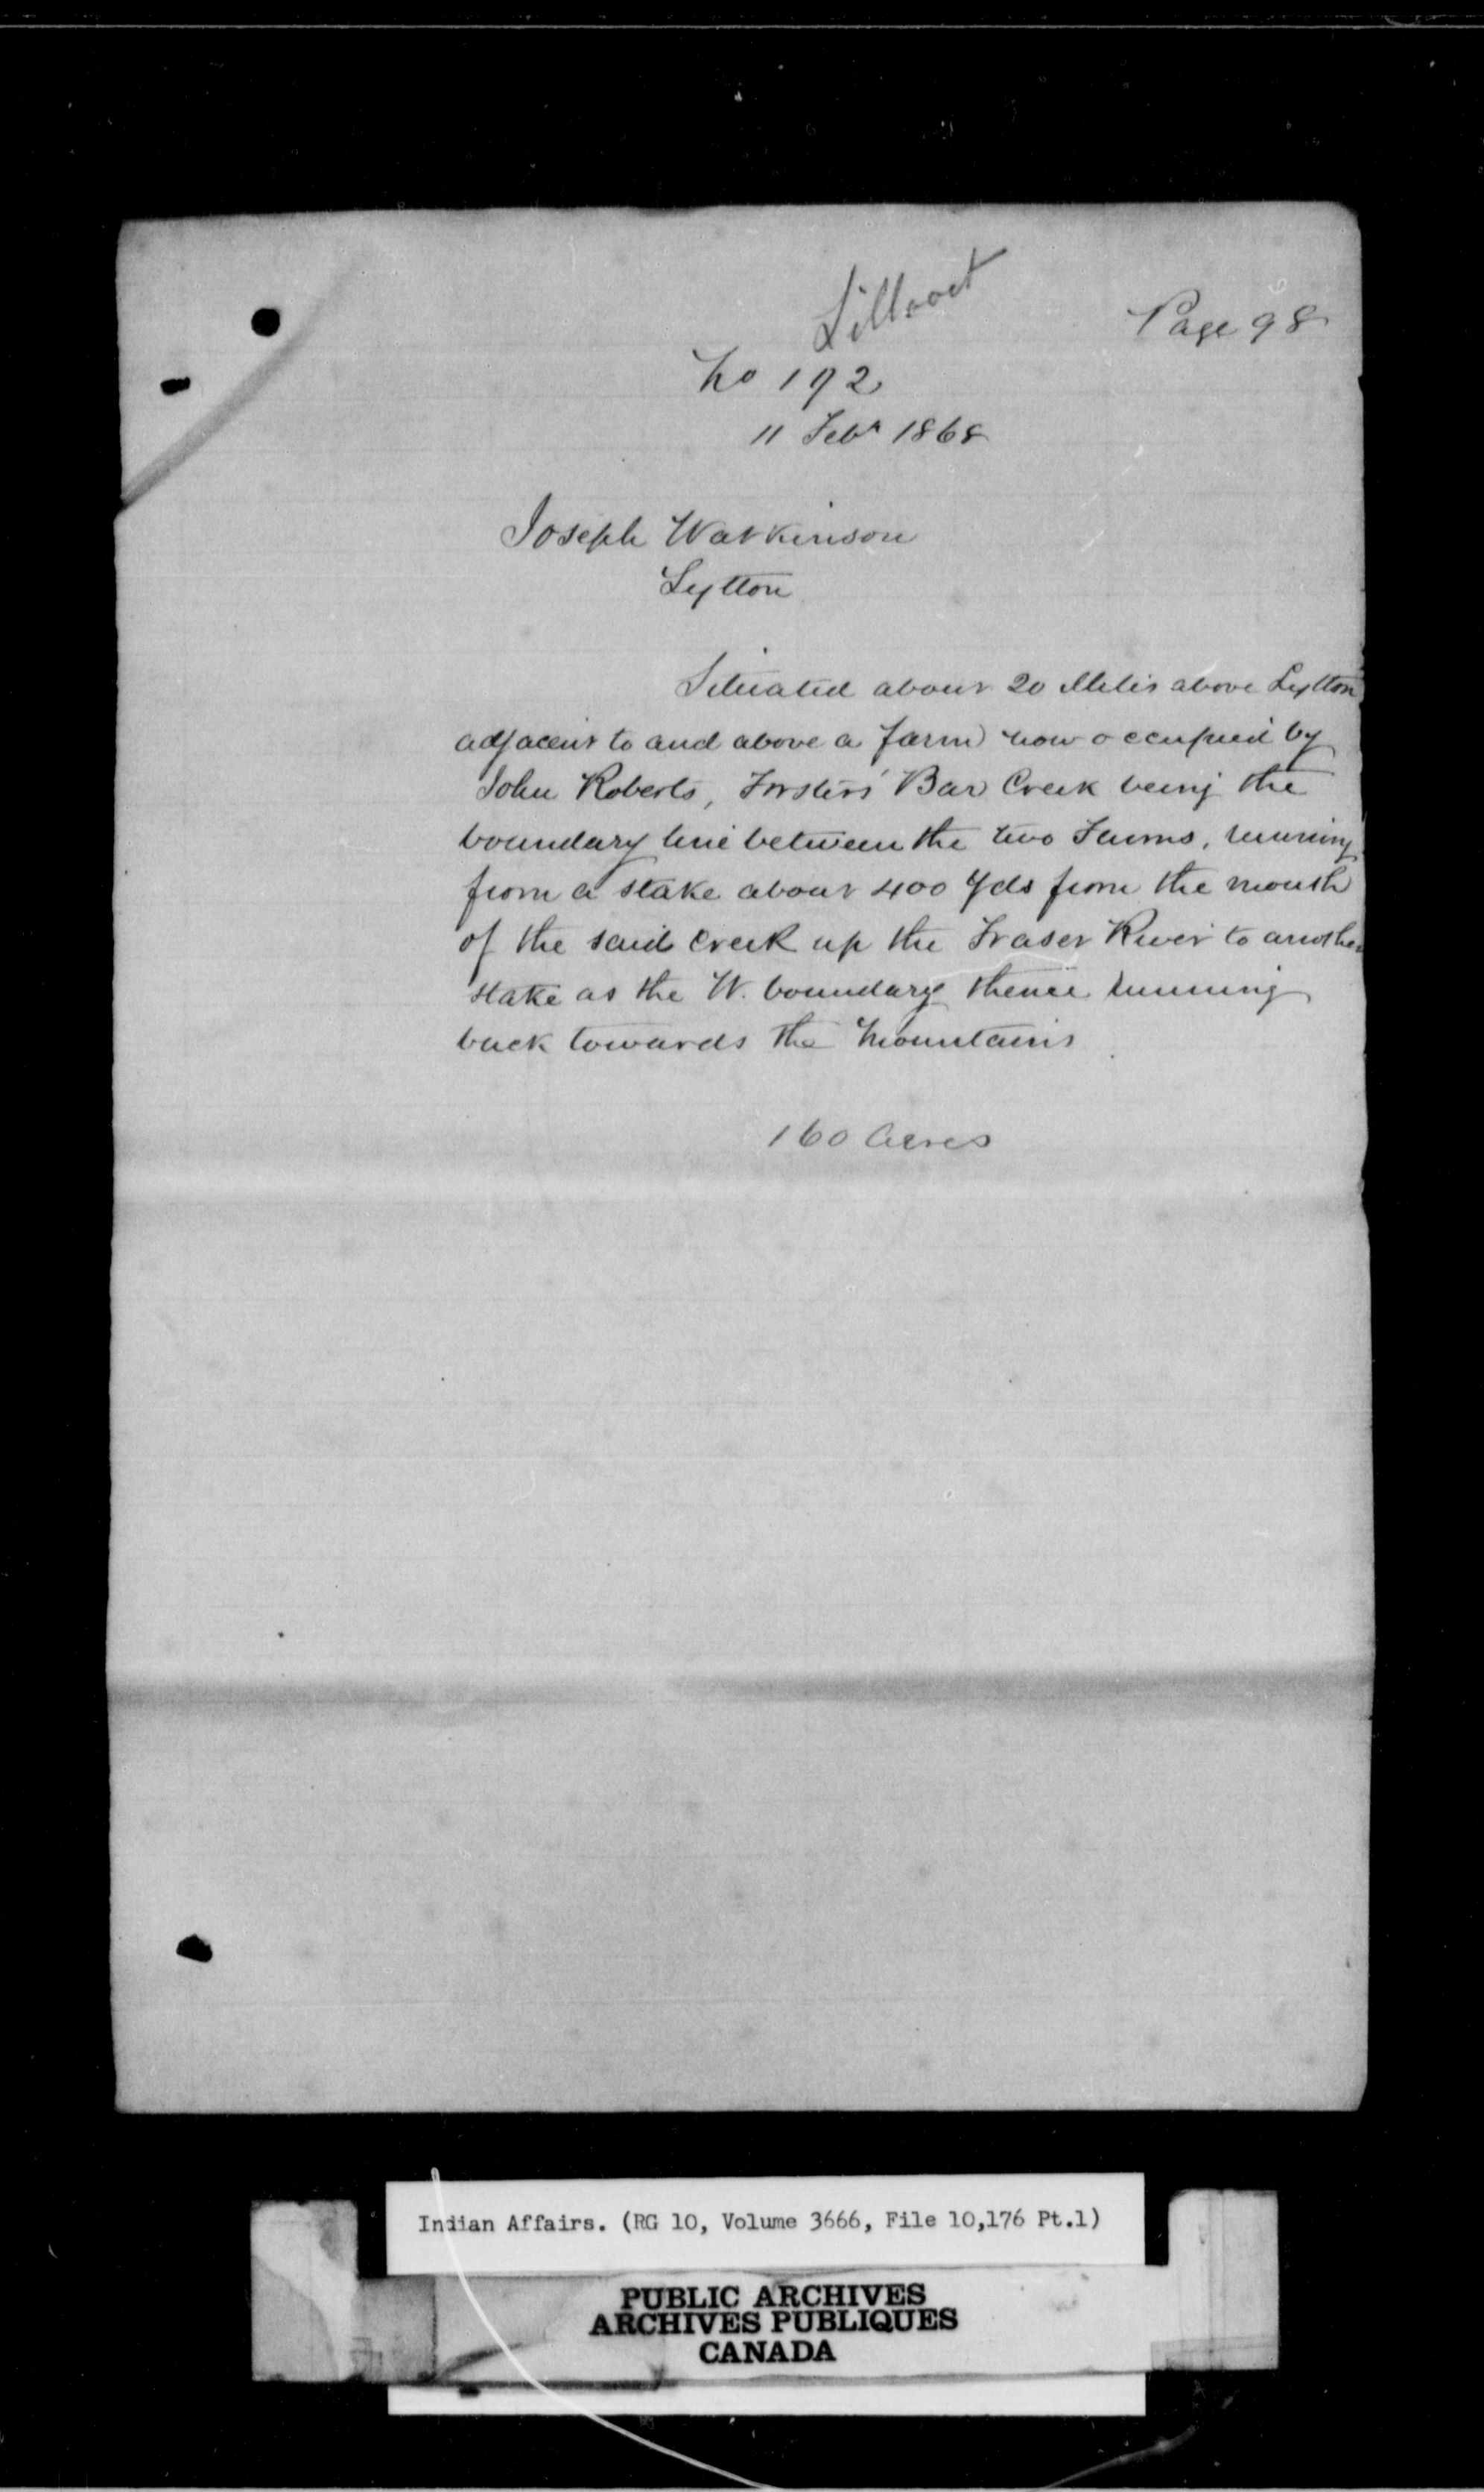 Lillooet
Page 98
No 192
11 Feby 1868
Joseph Watkinson
Lytton
Situated about 20 Miles above Lytton
adjacent to and above a farm now occupied by
John Roberts, Forsters' Bar Creek being the
boundary line between the two Farms, running
from a stake about 400 Yds from the mouth
of the said Creek up the Fraser River to another
stake as the W. boundary thence running
back towards the Mountains
160 Acres
Indian Affairs. (RG 10, Volume 3666, File 10,176 Pt.1)
PUBLIC ARCHIVES
ARCHIVES PUBLIQUES
CANADA